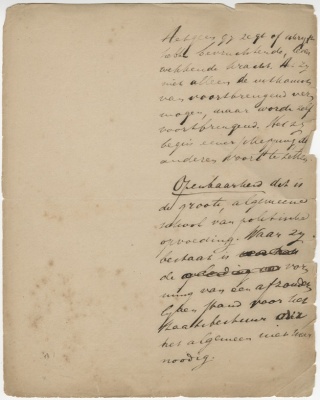 Hetgeen gy zegt of schryft
hebbe levenwekkende, op-
wekkende kracht. Het zy
niet alleen de uitkomst
van voortbrengend ver-
mogen, maar worde zelf
voortbrengend. Het zy
begin eener schepping, die
anderen voortzetten.
Openbaarheid dat is
de groote, algemeene
school van politische
opvoeding. Waar zy
bestaat is
de vor-
ming van een afzonder-
lyken stand voor het
Staatsbestuur
het algemeen niet meer
noodig.